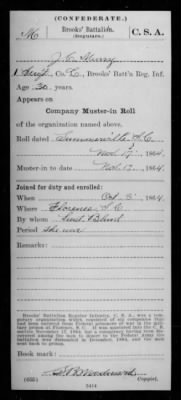 (CONFEDERATE.)
M Brooks' Battalion. C. S. A.
(Regulars.)
J. C. Murray
1 Sergt, Co. C, Brooks' Batt'n Reg. Inf.
Age 30 years.
Appears on
Company Muster-in Roll
of the organization named above.
Roll dated Summerville S.C.
Nov. 17, 1864.
Muster-in to date Nov. 17, 1864.
Joined for duty and enrolled:
When Oct 8, 1864.
Where Florence S.C.
By whom Lieut Blund
Period The war
Remarks:
Brooks' Battalion Regular Infantry, C. S. A., was a temporary organization which consisted of six companies that had been enlisted from Federal prisoners of war in military prison at Florence, S. C. It was appointed into the C. S. service November 17, 1864, but a company having formed
Book mark:
(635) S B Woodward
Copyist.